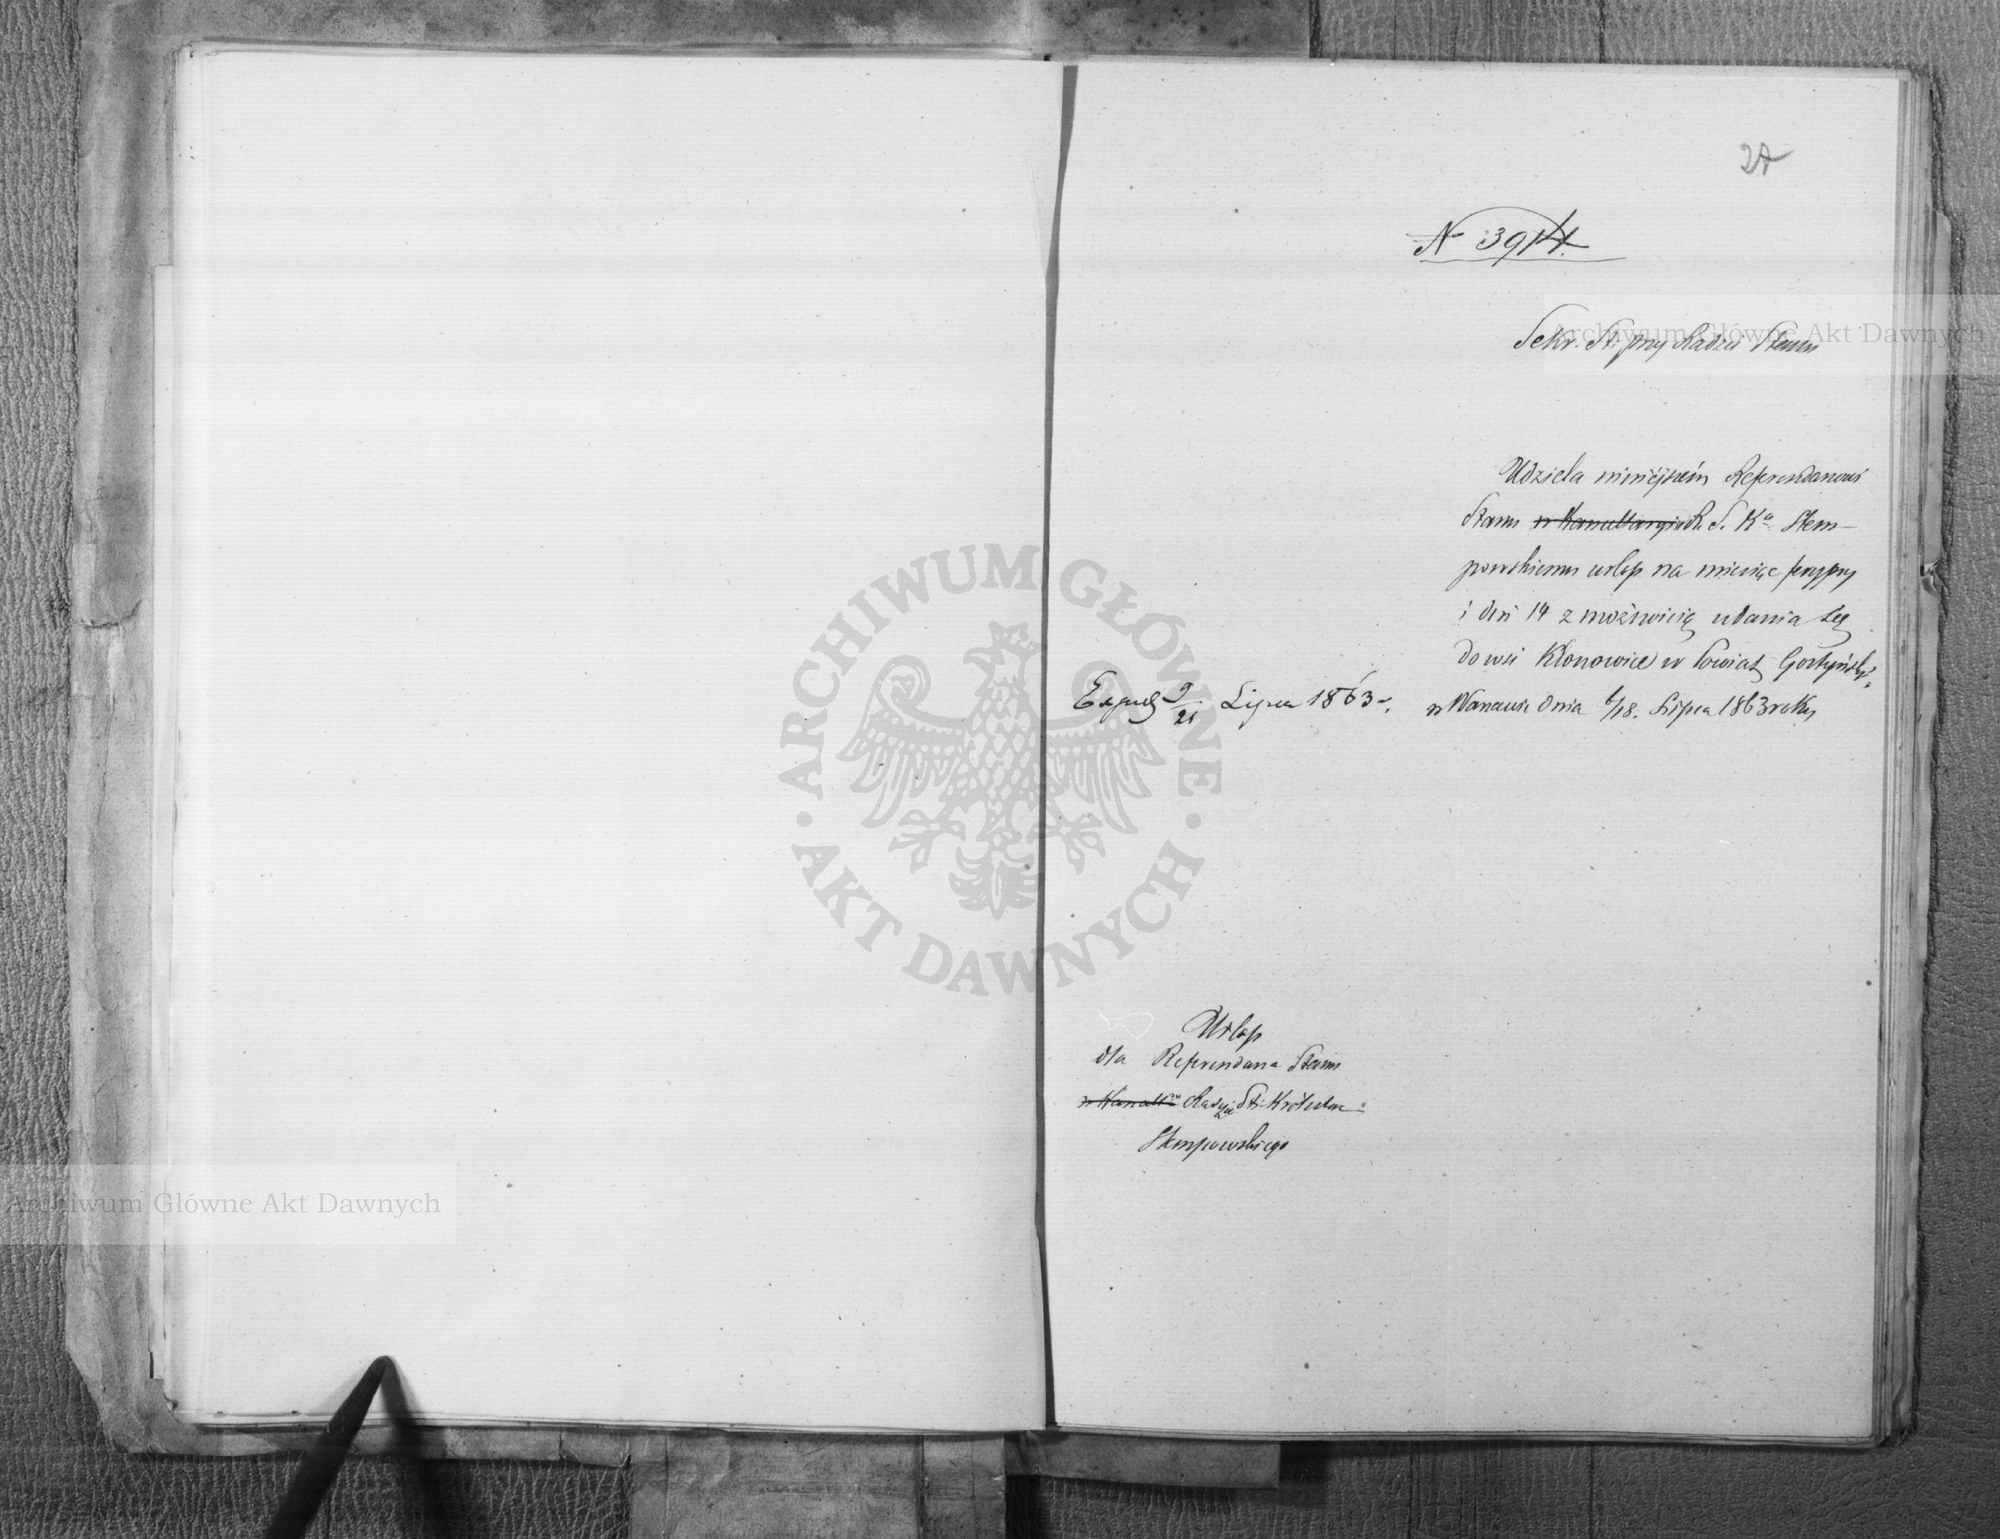 27
N 3914.
Sekr. St. przy Radzie Stanu
Udziela niniejszém Referendarzowi
Stanu w Kancellaryi R. S. Ka Stem-
powskiemu urlop na miesiąc jeden
i dni 14 z możnością udania się
do wsi Klonowice w Powiat Gostyńskí.
w Warszawie dnia 6/18. Lipca 1863 roku
Exped 9/21 Lipca 1863 r.
Urlop
dla Referendarza Stanu
w Kancell Radzie St: Królestwa
Stempowskiego
ARCHIWUM GŁÓWNE · AKT DAWNYCH ·
Archiwum Główne Akt Dawnych
Archiwum Główne Akt Dawnych